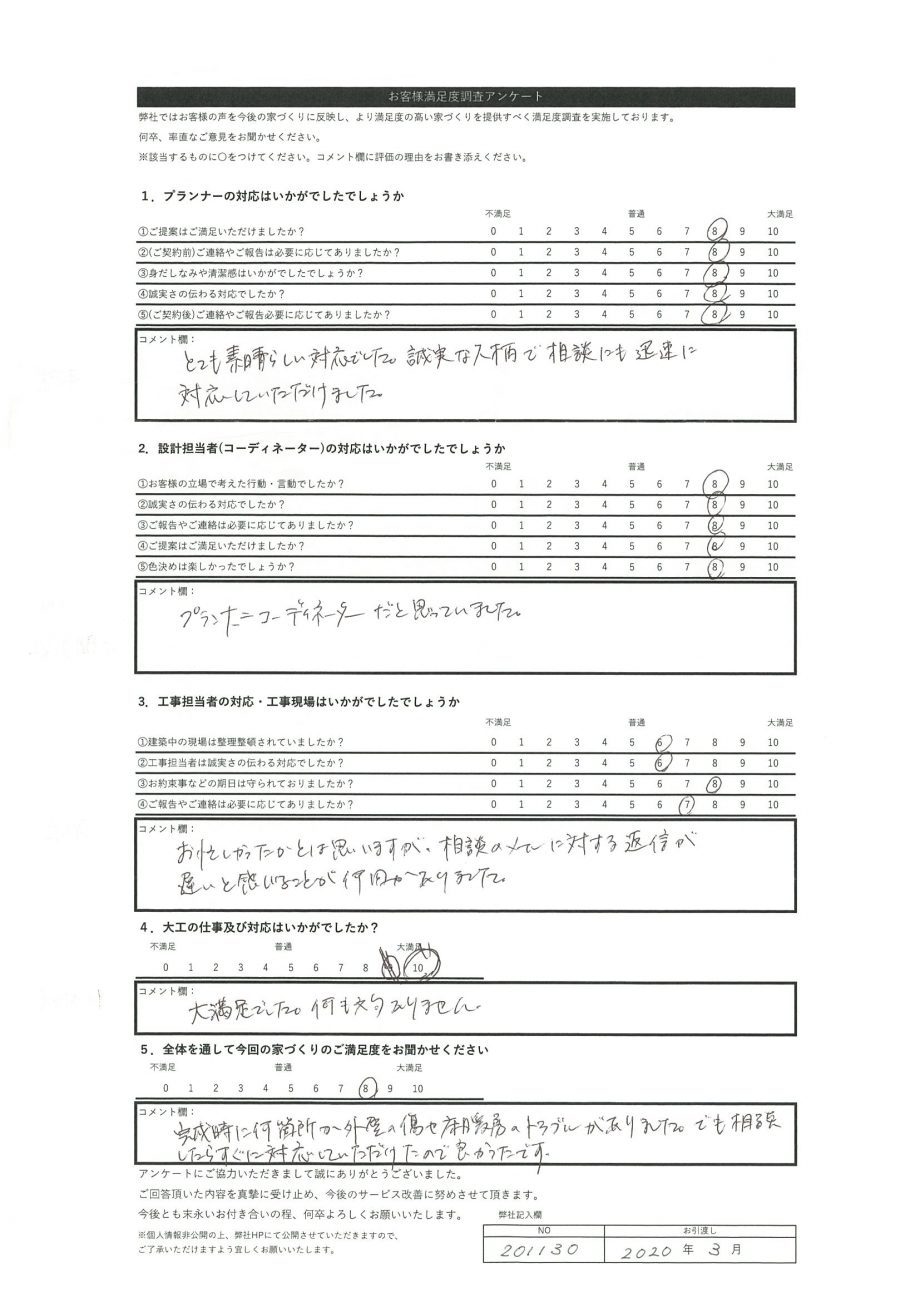 お客様満足度調査アンケート
弊社ではお客様の声を今後の家づくりに反映し、より満足度の高い家づくりを提供すべく満足度調査を実施しております。
何卒、率直なご意見をお聞かせください。
※該当するものに〇をつけてください。コメント欄に評価の理由をお書き添えください。
1．プランナーの対応はいかがでしたでしょうか
不満足 普通 大満足
①ご提案はご満足いただけましたか？ 0 1 2 3 4 5 6 7 8 9 10
②(ご契約前)ご連絡やご報告は必要に応じてありましたか？ 0 1 2 3 4 5 6 7 8 9 10
③身だしなみや清潔感はいかがでしたでしょうか？ 0 1 2 3 4 5 6 7 8 9 10
④誠実さの伝わる対応でしたか？ 0 1 2 3 4 5 6 7 8 9 10
⑤(ご契約後)ご連絡やご報告必要に応じてありましたか？ 0 1 2 3 4 5 6 7 8 9 10
コメント欄：
とても素晴らしい対応でした。誠実な人柄で相談にも迅速に
対応していただけました。
2．設計担当者(コーディネーター)の対応はいかがでしたでしょうか
不満足 普通 大満足
①お客様の立場で考えた行動・言動でしたか？ 0 1 2 3 4 5 6 7 8 9 10
②誠実さの伝わる対応でしたか？ 0 1 2 3 4 5 6 7 8 9 10
③ご報告やご連絡は必要に応じてありましたか？ 0 1 2 3 4 5 6 7 8 9 10
④ご提案はご満足いただけましたか？ 0 1 2 3 4 5 6 7 8 9 10
⑤色決めは楽しかったでしょうか？ 0 1 2 3 4 5 6 7 8 9 10
コメント欄：
プランナー＝コーディネーターだと思っていました。
3．工事担当者の対応・工事現場はいかがでしたでしょうか
不満足 普通 大満足
①建築中の現場は整理整頓されていましたか？ 0 1 2 3 4 5 6 7 8 9 10
②工事担当者は誠実さの伝わる対応でしたか？ 0 1 2 3 4 5 6 7 8 9 10
③お約束事などの期日は守られておりましたか？ 0 1 2 3 4 5 6 7 8 9 10
④ご報告やご連絡は必要に応じてありましたか？ 0 1 2 3 4 5 6 7 8 9 10
コメント欄：
お忙しかったかとは思いますが、相談のメールに対する返信が
遅いと感じることが何回かありました。
4．大工の仕事及び対応はいかがでしたか？
不満足 普通 大満足
0 1 2 3 4 5 6 7 8 9 10
コメント欄：
大満足でした。何も文句ありません。
5．全体を通して今回の家づくりのご満足度をお聞かせください
不満足 普通 大満足
0 1 2 3 4 5 6 7 8 9 10
コメント欄：
完成時に何箇所か外壁の傷や床暖房のトラブルがありました。でも相談
したらすぐに対応していただけたので良かったです。
アンケートにご協力いただきまして誠にありがとうございました。
ご回答頂いた内容を真摯に受け止め、今後のサービス改善に努めさせて頂きます。
今後とも末永いお付き合いの程、何卒よろしくお願いいたします。
※個人情報非公開の上、弊社HPにて公開させていただきますので、
ご了承いただけますよう宜しくお願いいたします。
弊社記入欄
NO お引渡し
201130 2020年3月